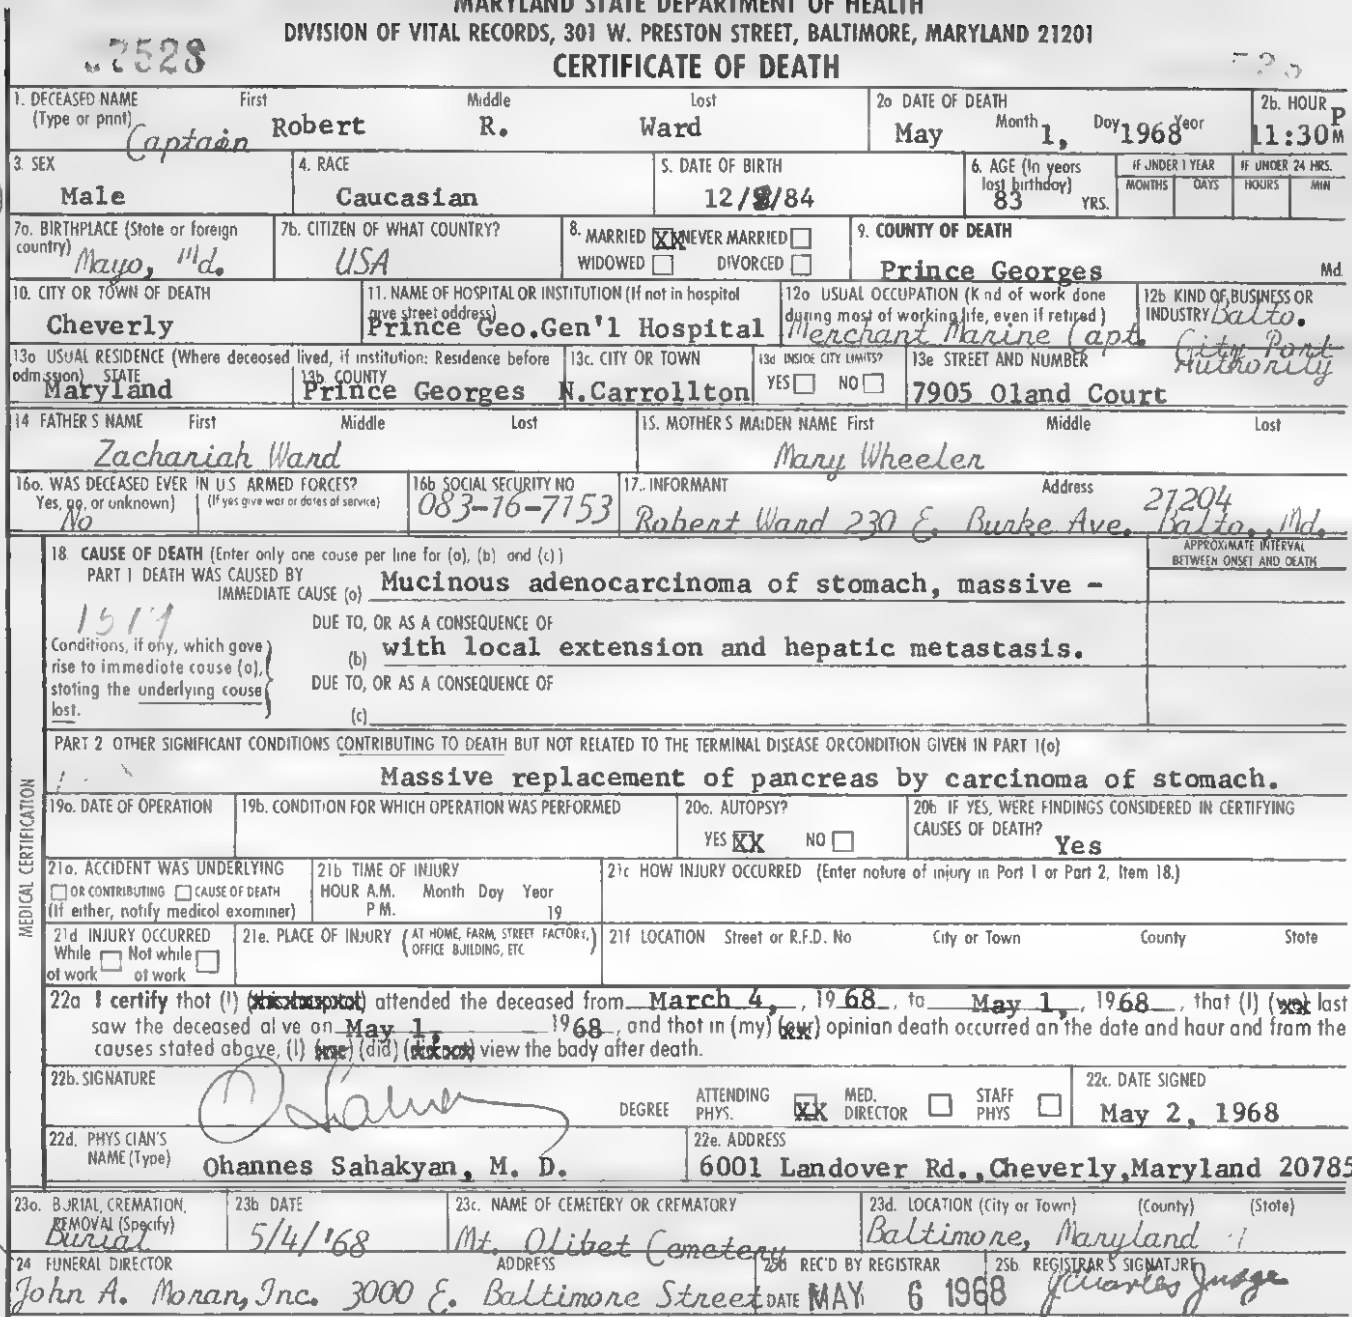 MARYLAND STATE DEPARTMENT OF HEALTH
DIVISION OF VITAL RECORDS, 301 W. PRESTON STREET, BALTIMORE, MARYLAND 21201
07528
CERTIFICATE OF DEATH
1. DECEASED NAME First Middle Last
(Type or print) Captain Robert R. Ward
2a DATE OF DEATH Month Day Year
May 1, 1968
2b. HOUR
11:30 P M
3. SEX
Male
4. RACE
Caucasian
5. DATE OF BIRTH
12/8/84
6. AGE (In years last birthday)
83 YRS.
IF UNDER 1 YEAR
MONTHS DAYS
IF UNDER 24 HRS.
HOURS MIN
7a. BIRTHPLACE (State or foreign country)
Mayo, Md.
7b. CITIZEN OF WHAT COUNTRY?
USA
8. MARRIED XX NEVER MARRIED
WIDOWED DIVORCED
9. COUNTY OF DEATH
Prince Georges Md.
10. CITY OR TOWN OF DEATH
Cheverly
11. NAME OF HOSPITAL OR INSTITUTION (If not in hospital give street address)
Prince Geo.Gen'l Hospital
12a USUAL OCCUPATION (Kind of work done during most of working life, even if retired)
Merchant Marine Capt.
12b KIND OF BUSINESS OR INDUSTRY
Balto. City Port Authority
13a USUAL RESIDENCE (Where deceased lived, if institution: Residence before admission) STATE
Maryland
13b. COUNTY
Prince Georges
13c. CITY OR TOWN
N.Carrollton
13d INSIDE CITY LIMITS?
YES NO
13e STREET AND NUMBER
7905 Oland Court
14 FATHER'S NAME First Middle Last
Zachariah Ward
15. MOTHER'S MAIDEN NAME First Middle Last
Mary Wheeler
16a. WAS DECEASED EVER IN U.S ARMED FORCES?
Yes, no, or unknown) (If yes give war or dates of service)
No
16b SOCIAL SECURITY NO
083-16-7153
17. INFORMANT Address
Robert Ward 230 E. Burke Ave. Balto., Md. 21204
MEDICAL CERTIFICATION
18 CAUSE OF DEATH (Enter only one cause per line for (a), (b) and (c))
APPROXIMATE INTERVAL
BETWEEN ONSET AND DEATH
PART 1 DEATH WAS CAUSED BY
IMMEDIATE CAUSE (a) Mucinous adenocarcinoma of stomach, massive -
DUE TO, OR AS A CONSEQUENCE OF
Conditions, if any, which gave rise to immediate cause (a), stating the underlying cause last.
(b) with local extension and hepatic metastasis.
DUE TO, OR AS A CONSEQUENCE OF
(c)
PART 2 OTHER SIGNIFICANT CONDITIONS CONTRIBUTING TO DEATH BUT NOT RELATED TO THE TERMINAL DISEASE OR CONDITION GIVEN IN PART 1(a)
Massive replacement of pancreas by carcinoma of stomach.
19a. DATE OF OPERATION
19b. CONDITION FOR WHICH OPERATION WAS PERFORMED
20a. AUTOPSY?
YES XX NO
20b IF YES, WERE FINDINGS CONSIDERED IN CERTIFYING CAUSES OF DEATH?
Yes
21a. ACCIDENT WAS UNDERLYING
OR CONTRIBUTING CAUSE OF DEATH
(If either, notify medical examiner)
21b TIME OF INJURY
HOUR A.M. Month Day Year
P M. 19
21c HOW INJURY OCCURRED (Enter nature of injury in Part 1 or Part 2, Item 18.)
21d INJURY OCCURRED
While at work Not while at work
21e. PLACE OF INJURY (AT HOME, FARM, STREET FACTORY, OFFICE BUILDING, ETC
21f LOCATION Street or R.F.D. No City or Town County State
22a I certify that (I) (this hospital) attended the deceased from March 4, , 1968 , to May 1, , 1968 , that (I) (we) last
saw the deceased alive on May 1, 1968 , and that in (my) (our) opinion death occurred on the date and hour and from the
causes stated above, (I) (we) (did) (did not) view the body after death.
22b. SIGNATURE
O Sahakyan
DEGREE
ATTENDING PHYS. XX
MED. DIRECTOR
STAFF PHYS
22c. DATE SIGNED
May 2, 1968
22d. PHYSICIAN'S NAME (Type)
Ohannes Sahakyan, M. D.
22e. ADDRESS
6001 Landover Rd.,Cheverly,Maryland 20785
23a. BURIAL, CREMATION, REMOVAL (Specify)
Burial
23b DATE
5/4/'68
23c. NAME OF CEMETERY OR CREMATORY
Mt. Olibet Cemetery
23d. LOCATION (City or Town) (County) (State)
Baltimore, Maryland
24 FUNERAL DIRECTOR ADDRESS
John A. Moran, Inc. 3000 E. Baltimore Street
25a REC'D BY REGISTRAR
DATE MAY 6 1968
25b. REGISTRAR'S SIGNATURE
J Charles Judge